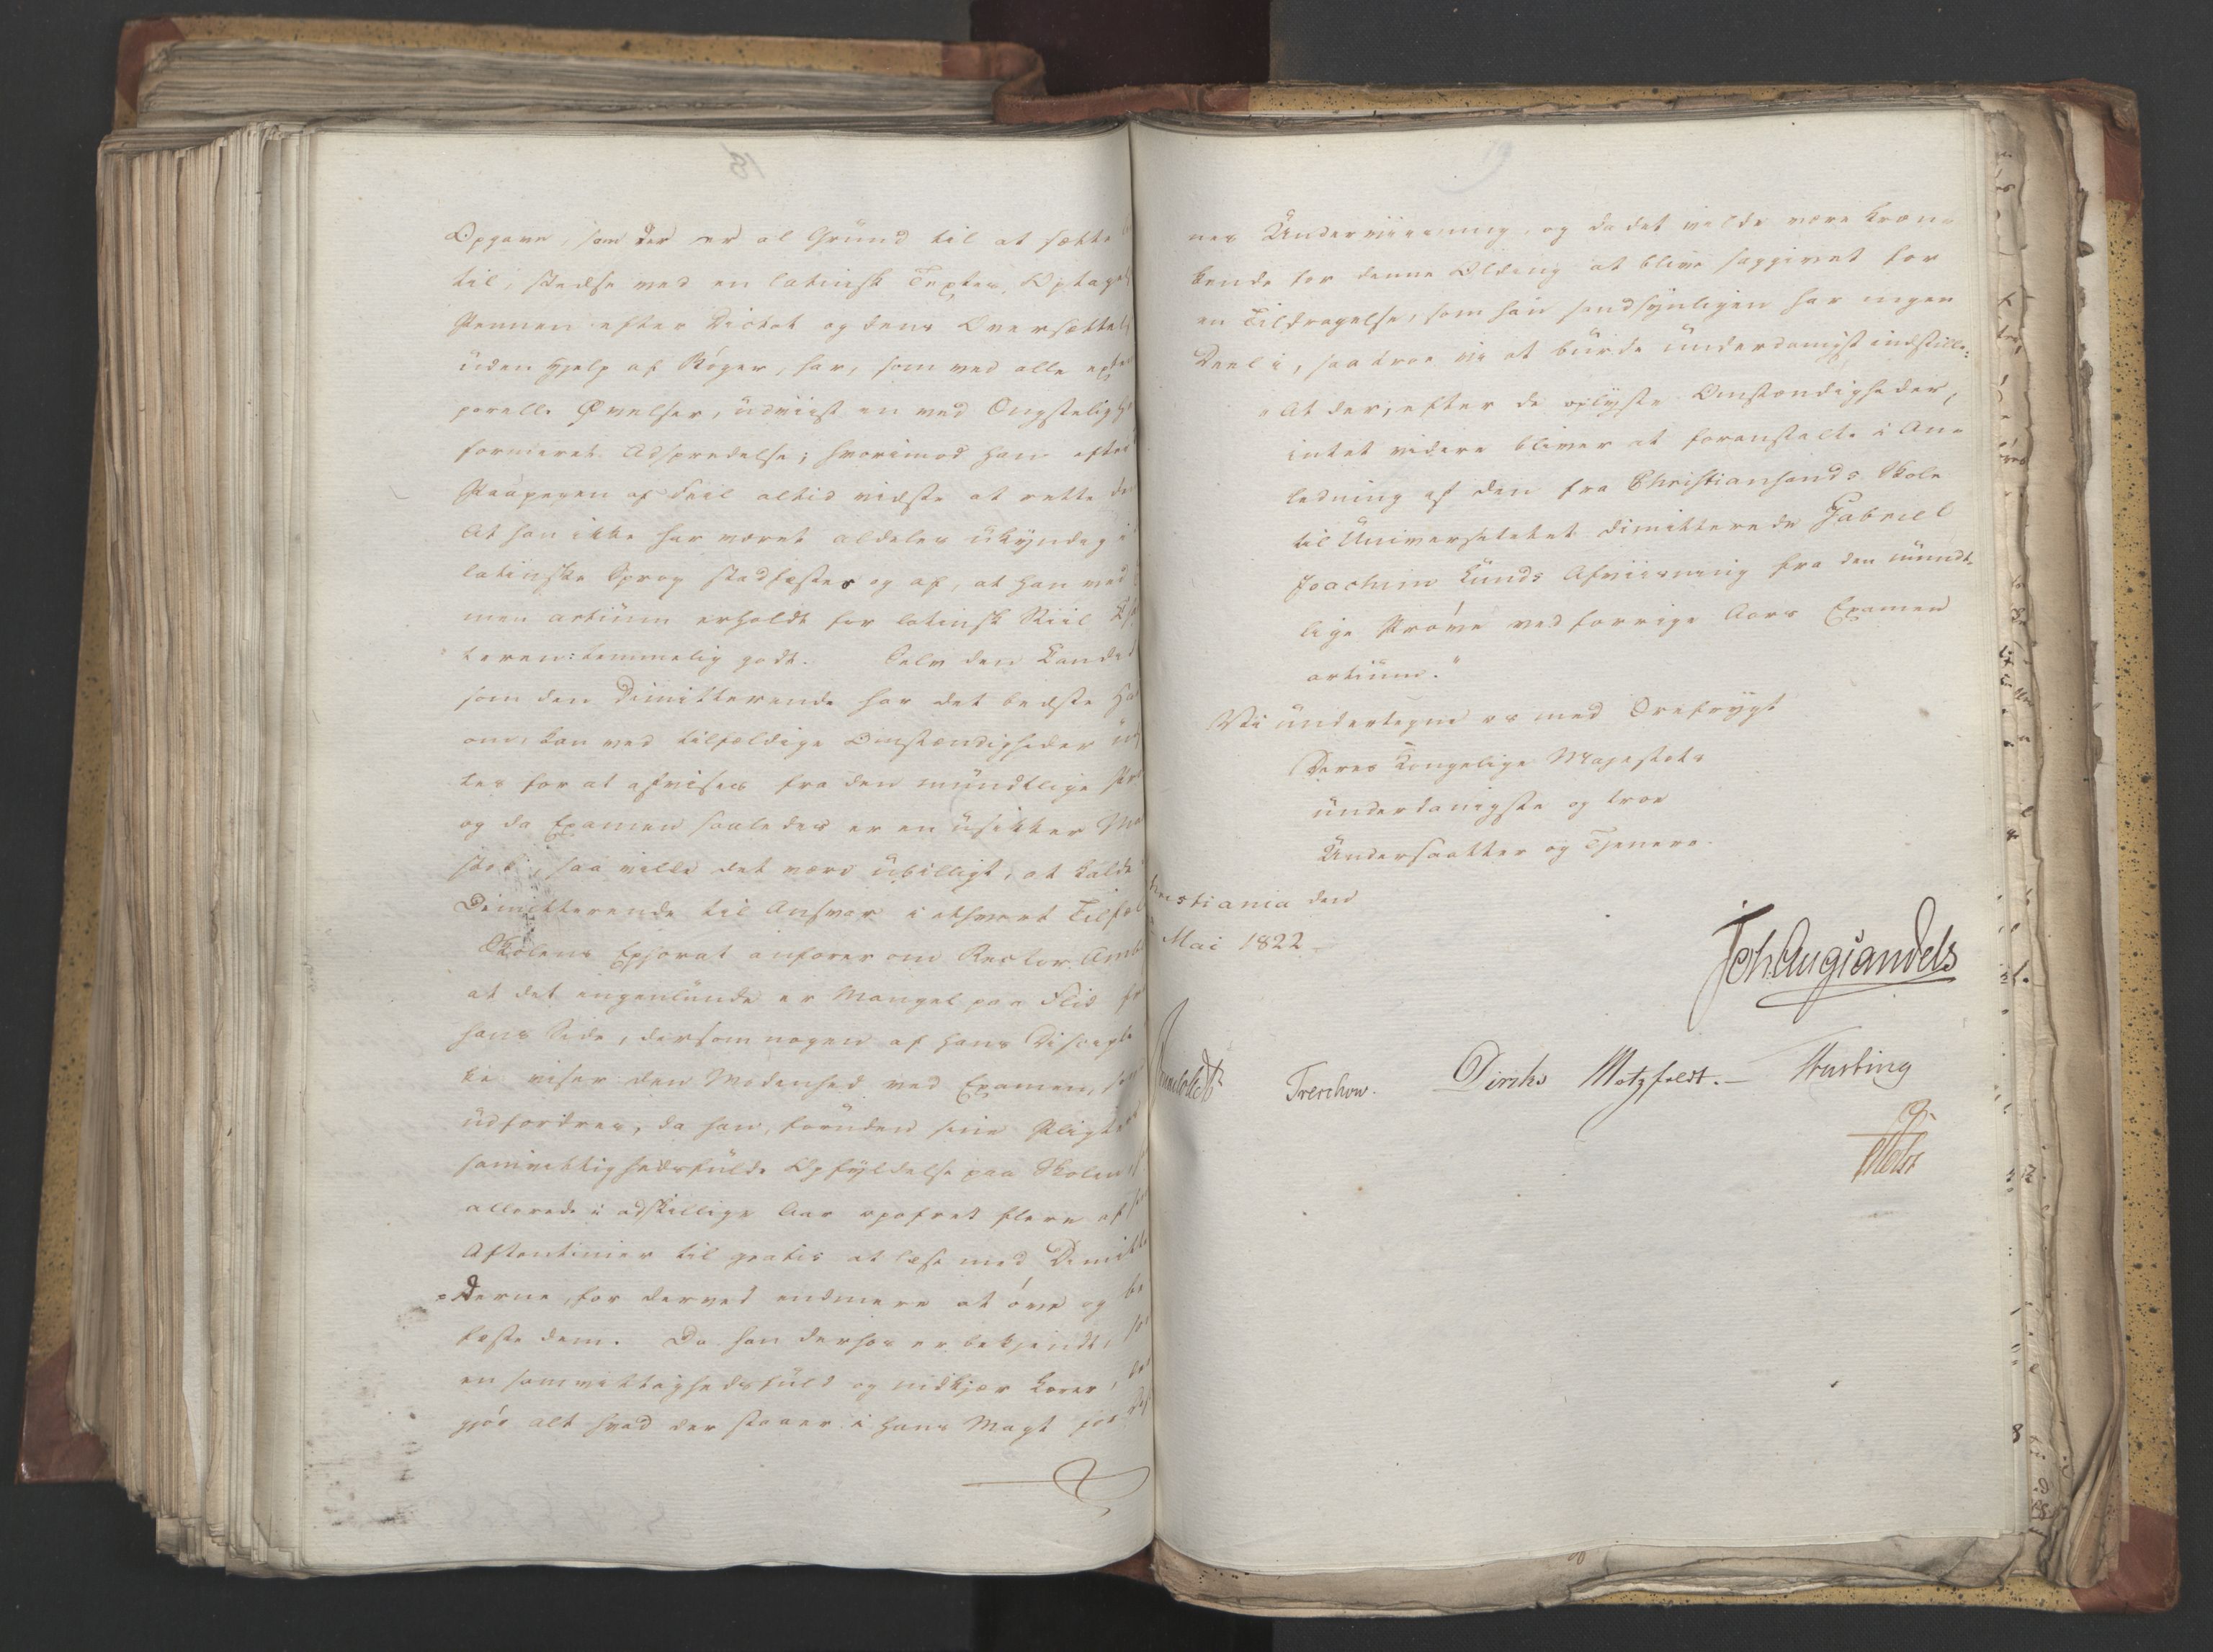 Opgave, som der er al Grund til at sætte
til, stedse ved en latinsk Textes Optagel
Pennen efter Dictat og dens Oversættels
uden Hjelp af Bøger, har, som ved alle exte
porelle Øvelser, udviist en ved Ængstelighe
formeret Adspredelse; hvorimod han efter
Paapegen af Feil altid vidste at rette de
At han ikke har været aldeles ukyndig i
latinske Sprog stadfæstes og af, at han ved
men artium erholdt for latinsk Stiil
teren: temmelig godt. Selv den Candidat
som den Dimitterende har det bedste Ha
om, kan ved tilfældige Omstændigheder
tes for at afvises fra den mundtlige Prø
og da Examen saaledes er en usikker Ma
stok, saa ville det være ubilligt, at kalde
Dimitterende til Ansvar i ethvert Tilfæl
Skolens Ephorat anfører om Rector
at det ingenlunde er Mangel paa Flid fra
hans Side, dersom nogen af hans Disciple
ei viser den Modenhed ved Examen, som
udfordres, da han, foruden sine Pligters
samvittighedsfulde Opfyldelse paa Skolen,
allerede i adskillige Aar opofret flere af
Aftentimer til gratis at læse med Dimitten
derne, for derved endmere at øve og be
fæste dem. Da han derhos er bekjendt som
en samvittighedsfuld og nidkjær Lærer,
gjør alt hvad der staaer i hans Magt for
nes Underviisning, og da det vilde være kræn-
kende for denne Olding at blive sagsøgt for
en Tildragelse, som han sandsynligen har ingen
Deel i, saa troe vi at burde underdanigst indstille:
"At der, efter de oplyste Omstændigheder,
intet videre bliver at foranstalte i An-
ledning af den fra Christiansands Skole
til Universitetet dimitterede Gabriel
Joachim Lunds Afviisning fra den mundt-
lige Prøve ved forrige Aars Examen
artium."
Vi undertegne os med Ærefrygt
Deres Kongelige Majestæts
underdanigste og troe
Undersaatter og Tjenere.
hristiania den
Mai 1822
Joh. Aug. Sandels
Treschow. Diriks Motzfeldt. –
Holst